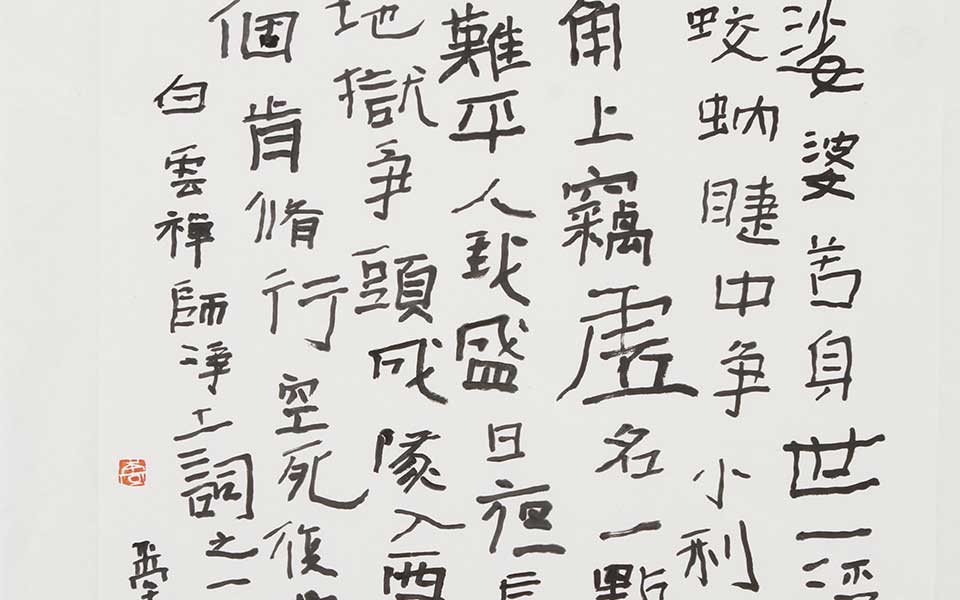 娑婆苦身世一浮
蛟蚋睫中爭小利
角上竊虛名一點
難平人我盛日夜長
地獄爭頭成隊入西
個肯脩行空死復
白雲禪師淨土詞之一